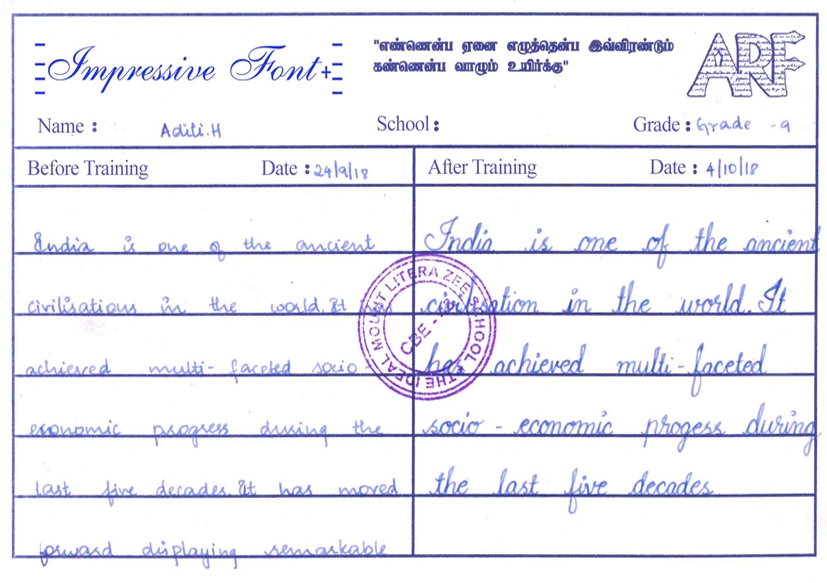 Impressive Font+
"எண்ணென்ப ஏனை எழுத்தென்ப இவ்விரண்டும்
கண்ணென்ப வாழும் உயிர்க்கு"
ARF
Name : Aditi.H School : Grade : Grade - 9
Before Training Date : 24/9/18
India is one of the ancient
civilisations in the world. It
achieved multi- faceted socio
economic progress during the
last five decades. It has moved
forward displaying remarkable
After Training Date : 4/10/18
India is one of the ancient
civilisation in the world. It
has achieved multi-faceted
socio - economic progess during
the last five decades
THE IDEAL MOUNT LITERA ZEE SCHOOL
CBE -